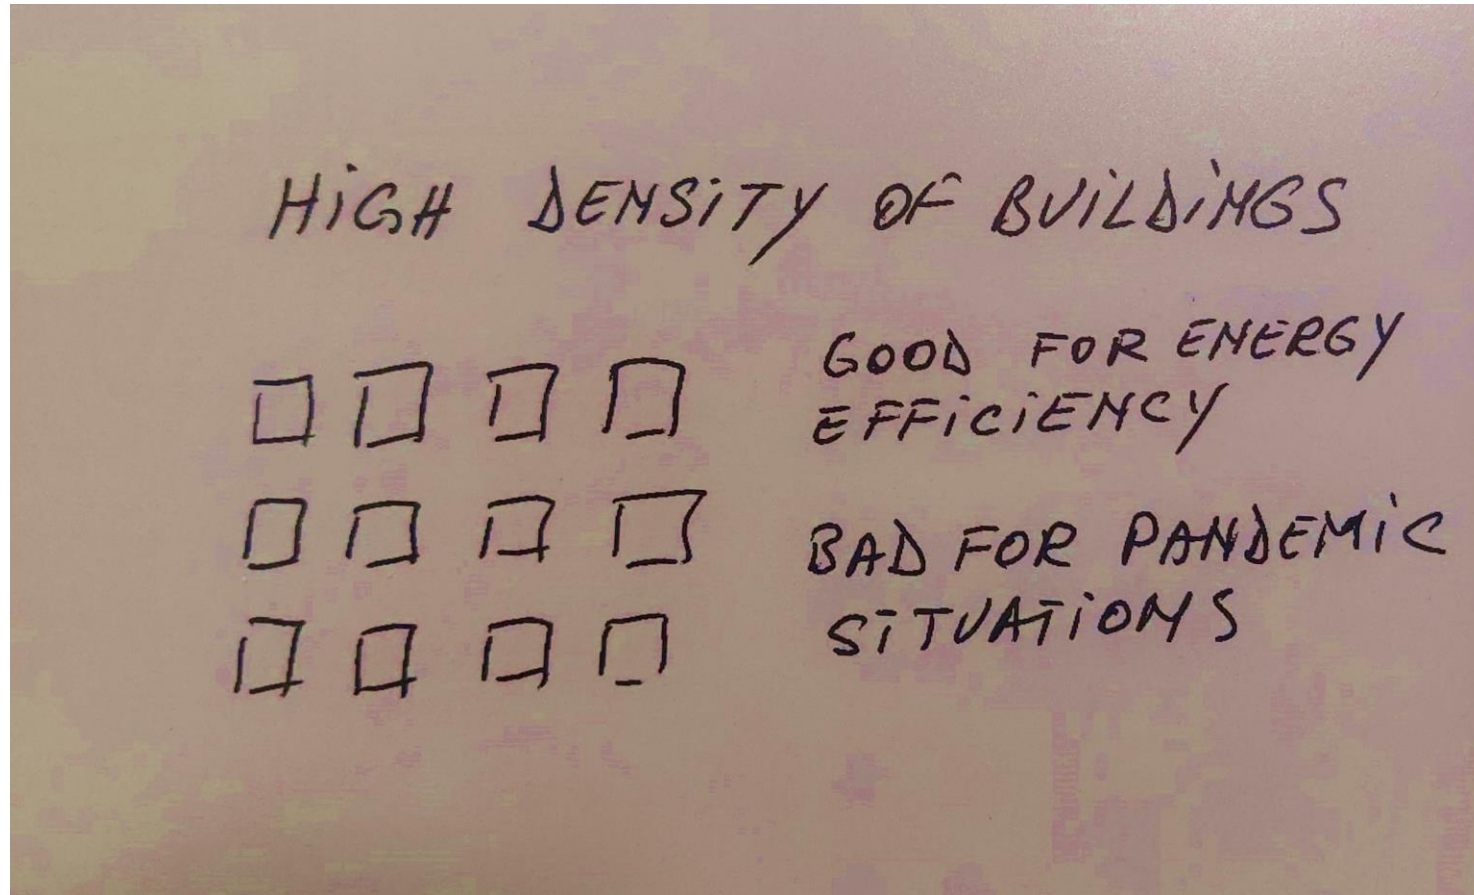 HiGH DENSiTY OF BUiLDiNGS
GOOD FOR ENERGY
EFFiCiENCY
BAD FOR PANDEMiC
SiTUATiONS